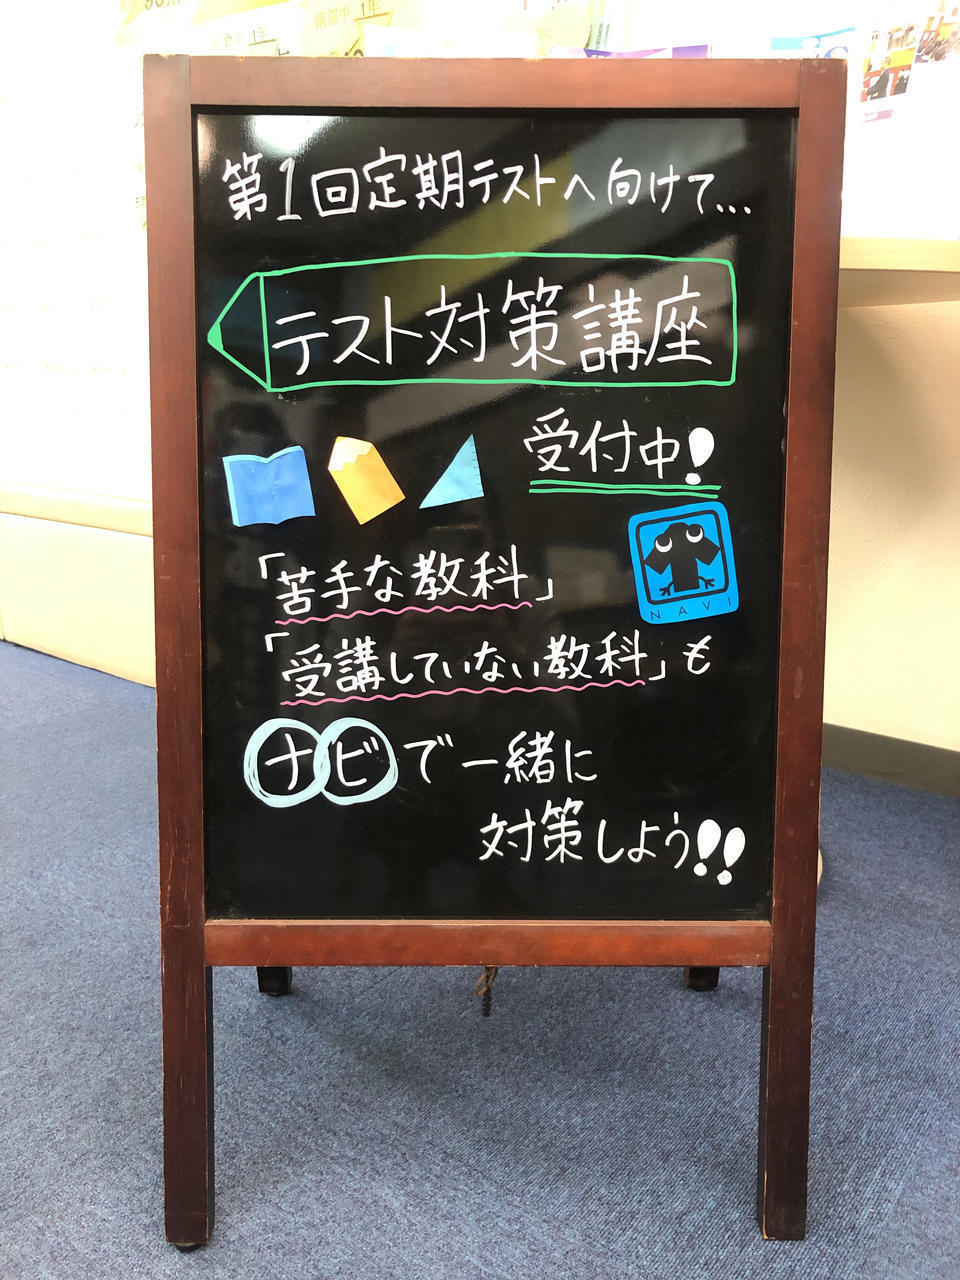 南部中 1年
第1回定期テストへ向けて...
テスト対策講座
受付中!
NAVI
「苦手な教科」
「受講していない教科」も
ナビで一緒に
対策しよう!!